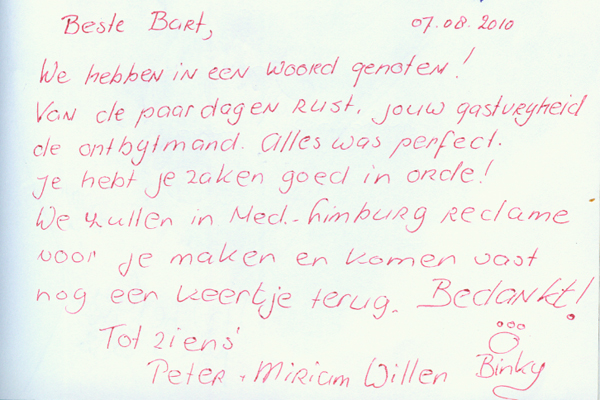 Beste Bart, 07.08.2010
We hebben in een woord genoten!
Van de paar dagen rust, jouw gastvryheid
de ontbytmand. Alles was perfect.
Je hebt je zaken goed in orde!
We zullen in Ned.-Limburg reclame
voor je maken en komen vast
nog een keertje terug. Bedankt!
Tot ziens'
Peter + Miriam Willen Binky